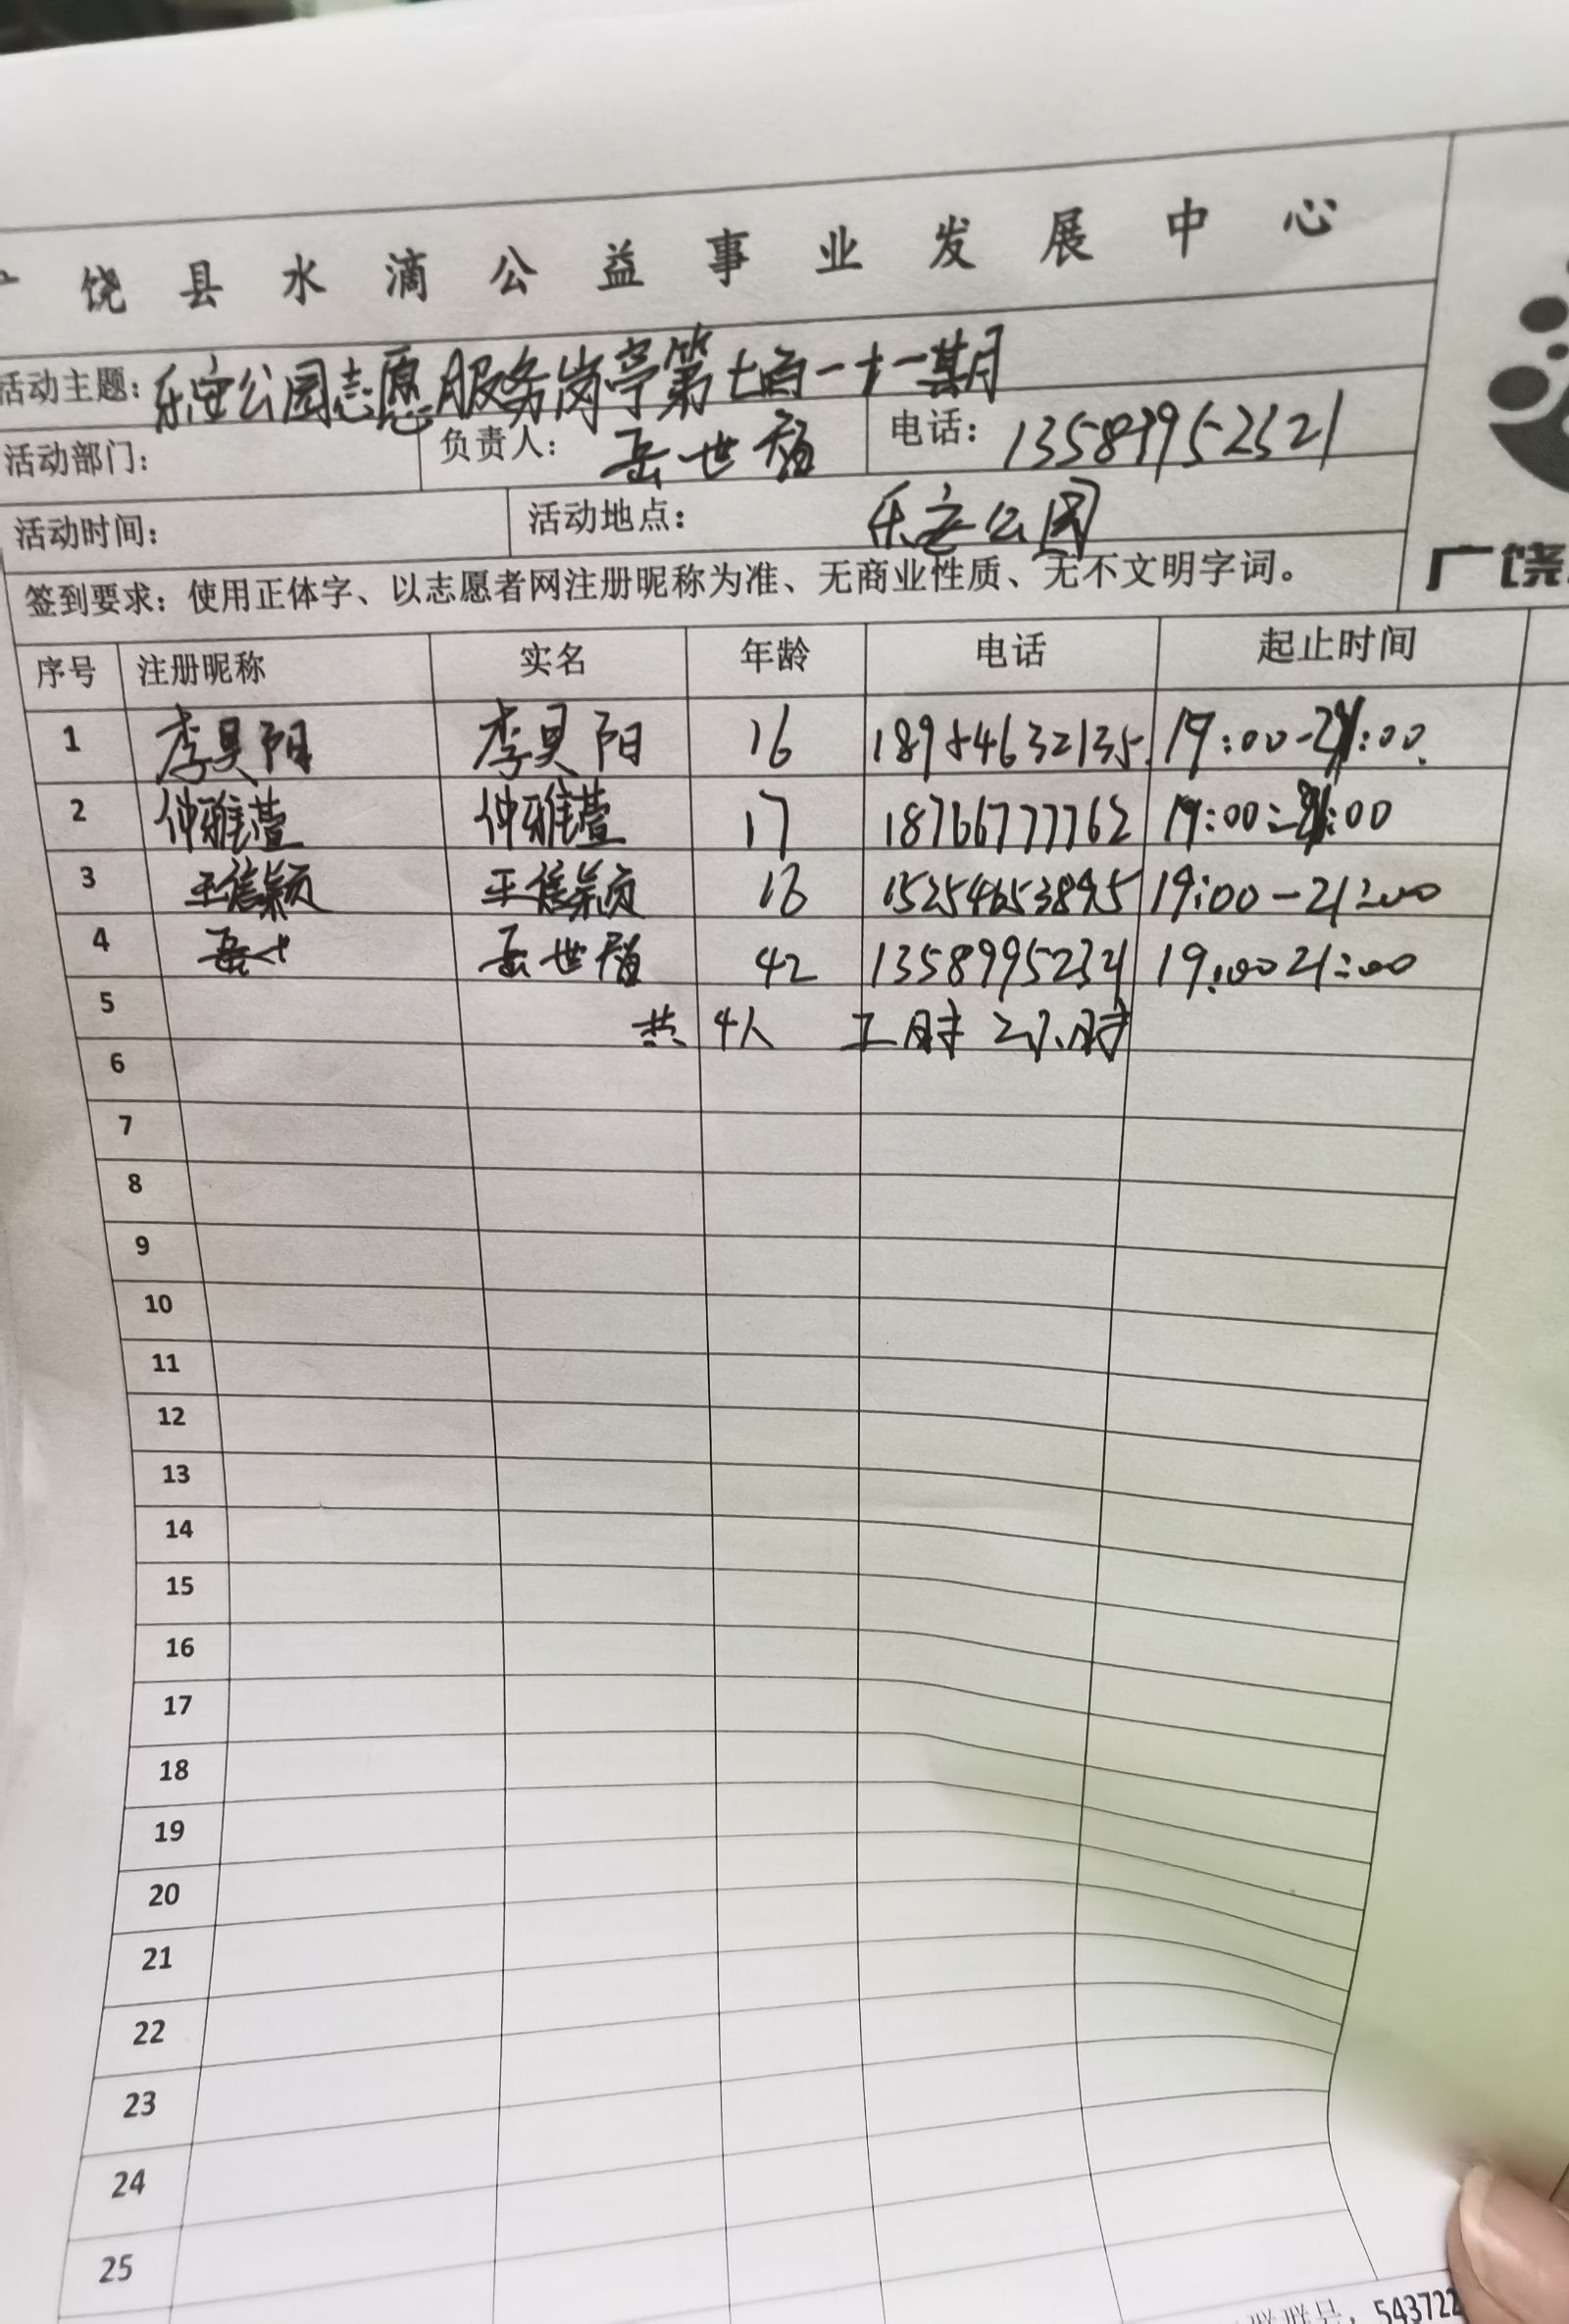 饶县水滴公益事业发展中心
活动主题：乐安公园志愿服务岗亭第七百一十一期
活动部门： 负责人：岳世 电话：13589952321
活动时间： 活动地点：乐安公园
广饶
签到要求：使用正体字、以志愿者网注册昵称为准、无商业性质、无不文明字词。
序号 注册昵称 实名 年龄 电话 起止时间
1 李昊阳 李昊阳 16 18954632135 19:00-21:00
2 仲雅萱 仲雅萱 17 18766777762 19:00-21:00
3 王信颖 王信颖 16 15254653895 19:00-21:00
4 岳世 42 13589952321 19:00 21:00
5 共4人 工时 2小时
6
7
8
9
10
11
12
13
14
15
16
17
18
19
20
21
22
23
24
25
543722